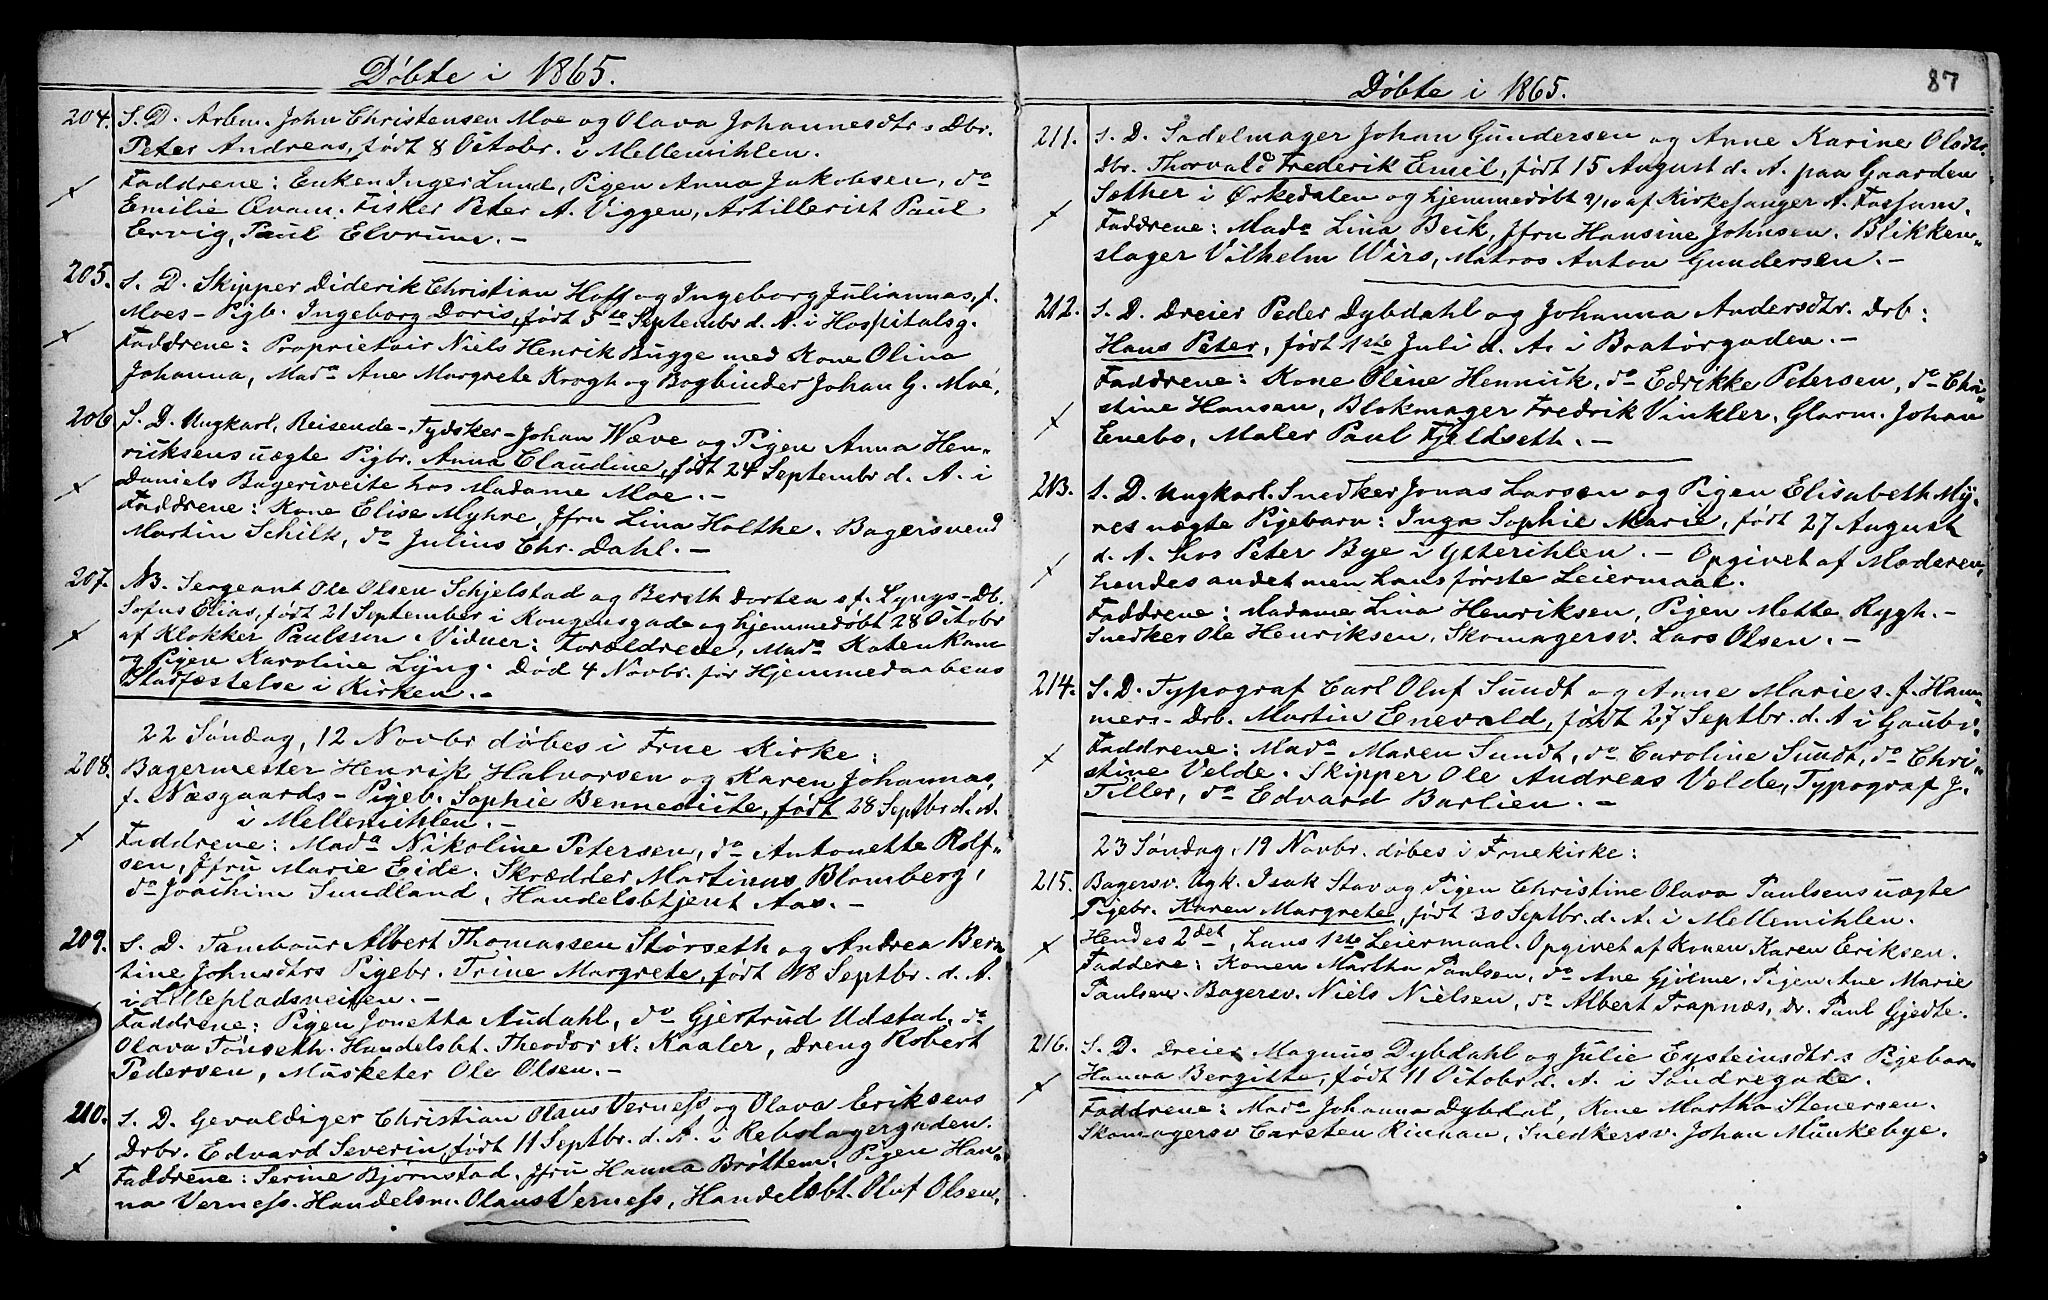 Döbte i 1865.
204. S. D. Arbm. John Christensen Moe og Olava Johannesdtrs Dbr.
Peter Andreas, født 8 Octobr. i Mellemihlen.
Faddrene: Enken Inger Lund, Pigen Anna Jakobsen, do
Emilie Qvam. Fisker Peter A. Viggen, Artillerist Paul
Ervig, Paul Elvrum. -
205. S. D. Skipper Diderik Christian Hoff og Ingeborg Juliannas, f.
Moes - Pigb. Ingeborg Doris, født 5te Septembr d. A. i Hospitalsg.
Faddrene: Proprietair Niels Henrik Bugge med Kone Olina
Johanna, Mada Ane Margrete Krogh og Bogbinder Johan G. Moe.
206 S. D. Ungkarl, Reisende - Tydsker - Johan Wæve og Pigen Anna Hen„
riksens uægte Pigbr. Anna Claudine, født 24 Septembr d. A. i
Daniels Bageriveite hos Madame Moe. -
Faddrene: Kone Elise Myhre, Jfru Lina Holthe. Bagersvend
Martin Schilk, do Julius Chr. Dahl. -
207. NB. Sergeant Ole Olsen Schjelstad og Bereth Dortea s f. Lyngs - Db.
Sofus Elias, født 21 September i Kongensgade og hjemmedøbt 28 Octobr
af Klokker Paulsson. Vidner: Forældrene, Mada Katenkam
og Pigen Karoline Lyng. Død 4 Novbr. før Hjemmedaabens
Stadfæstelse i Kirken. -
22 Söndag, 12 Novbr döbes i Frue Kirke:
208. Bagermester Henrik Halvorsen og Karen Johannas,
f. Næsgaards - Pigeb. Sophie Bennedicte, født 28 Septbr d. A.
i Mellemihlen. -
Faddrene: Mada Nikoline Petersen, do Antonette Rolf„
sen, Jfru Marie Eide. Skrædder Martinus Blomberg,
do Joachim Sundland, Handelsbtjent Aas. -
209. S. D. Tambour Albert Thomassen Störseth og Andrea Bern
tine Johnsdtrs Pigebr. Trine Margrete, født 18 Septbr. d. A.
i Lillepladsveiten. -
Faddrene: Pigen Jonetta Audahl, do Gjertrud Udstad, do
Olava Tönseth. Handelsbt. Theodor K: Kaaler, Dreng Robert
Pedersen, Musketer Ole Olsen. -
210. S. D. Gevaldiger Christian Olaus Verness og Olava Eriksens
Drbr. Edvard Severin, født 11 Septbr. d. A. i Rebslagergaden.
Faddrene: Serine Bjørnstad. Jfru Hanna Bröttem. Pigen Han„
na Verness. Handelsm. Olaus Verness, Handelsbt. Oluf Olsen,
Döbte i 1865. 87
211. S. D. Sadelmager Johan Gundersen og Anne Karine Olsdtrs
Dbr. Thorvald Frederik Emil, født 15 August d. A. paa Gaarden
Sother i Ørkedalen og hjemmedöbt 2/10 af Kirkesanger A. Fossum.
Faddrene: Mada Lina Beik, Jfru Hansine Johnsen. Blikken„
slager Vilhelm Wirs, Matros Anton Gundersen. -
212. S. D. Dreier Peder Dybdahl og Johanna Andersdtr. Drb:
Hans Peter, født 1ste Juli d. A. i Bratörgaden. -
Faddrene: Kone Oline Hennick, do Edrikke Petersen, do Chri„
stine Hansen, Blokmager Fredrik Vinkler, Glarm. Johan
Enebo, Maler Paul Fjeldseth. -
213. S. D. Ungkarl. Snedker Jonas Larsen og Pigen Elisabeth My„
res uægte Pigebarn: Inga Sophie Marie, født 27 August
d. A. hos Peter Bye i Ytterihlen. - Opgivet af Moderen,
hendes andet men hans første Leiermaal.
Faddrene: Madame Lina Henriksen, Pigen Mette Rygh. -
Snedker Ole Henriksen, Skomagersv. Lars Olsen. -
214. S. D. Typograf Carl Oluf Sundt og Anne Marie s. f. Ham„
mers - Drb. Martin Enevold, født 27 Septbr. d. A i Gaubv.
Faddrene: Mada Maren Sundt, do Caroline Sundt, do Chri„
stine Velde. Skipper Ole Andreas Velde, Typograf J.
Tiller, do Edvard Barlien. -
23 Söndag, 19 Novbr. döbes i Fruekirke:
215. Bagersv. Ugk. Isak Stav og Pigen Christine Olava Paulsens uægte
Pigebr. Karen Margrete, født 30 Septbr. d. A. i Mellemihlen.
Hendes 2det, hans 1ste Leiermaal. Opgivet af Konen Karen Eriksen.
Faddere: Konen Martha Paulsen, do Ane Gjölme. Pigen Ane Marie
Paulsen. Bagersv. Niels Nielsen, do Albert Trapnæs, Dr. Paul Gjedte.
216. S. D. Dreier Magnus Dybdahl og Julie Eysteinsdtrs Pigebarn
Hanna Bergitte, født 11 Octobr d. A. i Söndregade.
Faddrene: Mada Johanna Dybdal, Kone Martha Stenersen.
Skomagersv Carsten Rinnan, Snedkersv. Johan Munkebye.